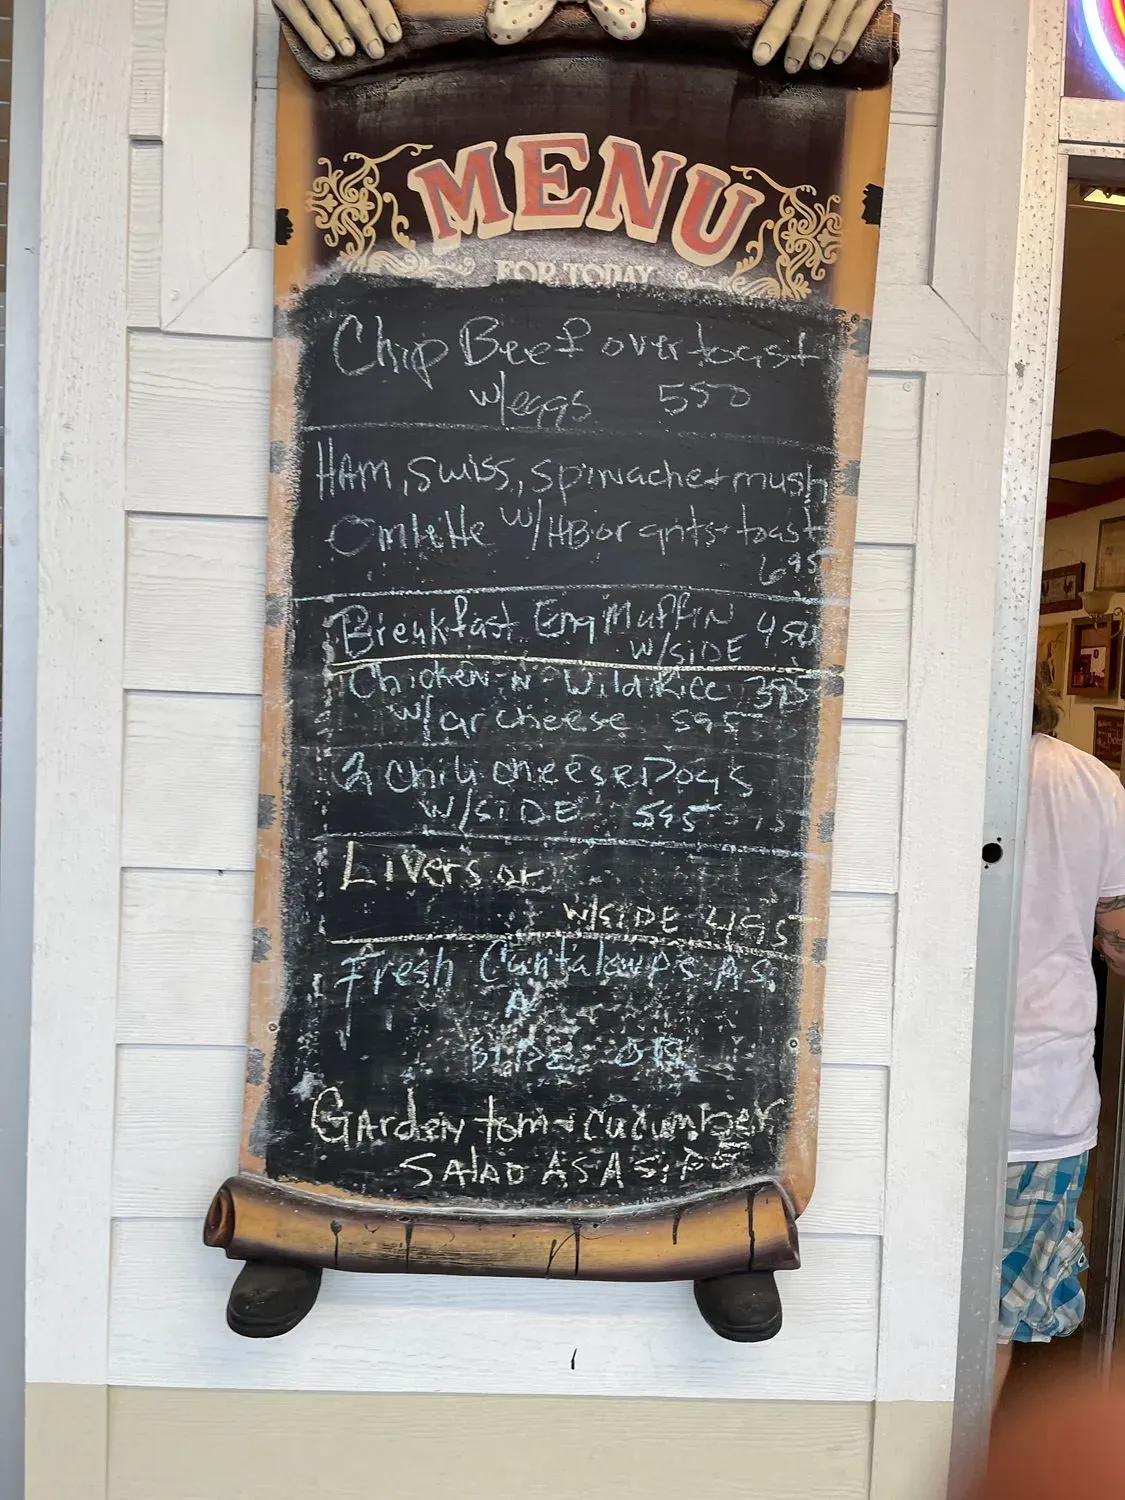 MENU
FOR TODAY
Chip Beef over toast
w/eggs 550
HAM, Swiss, Spinache + mush
Omlette w/HB or grits + toast
6 95
Breakfast Eng Muffin 450
w/SIDE
Chicken-N Wild Rice 395
w/gr cheese 595
2 Chili cheese Dogs
w/SIDE 595
Livers or
w/SIDE 495
Fresh Cantaloupe AS
A
SIDE OR
GARDEN tom + cucumber
SALAD AS A